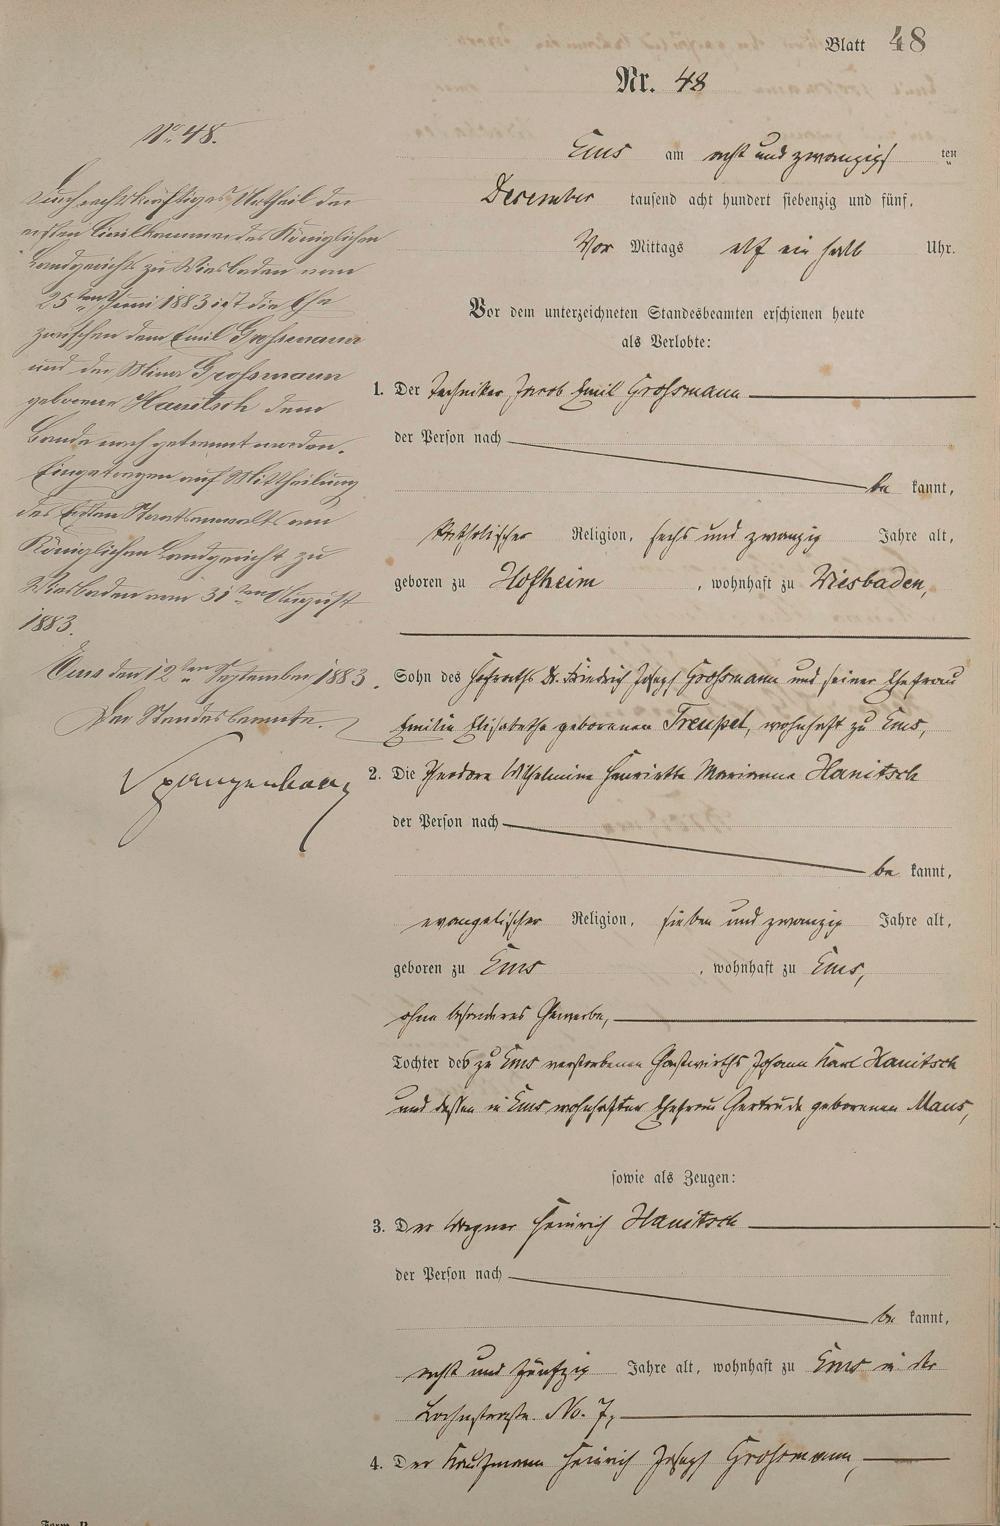 Blatt 48
Nr. 48
Ems am acht und zwanzigs ten
Dezember tausend acht hundert siebenzig und fünf,
Vor Mittags elf ein halb Uhr.
Vor dem unterzeichneten Standesbeamten erschienen heute
als Verlobte:
1. Der Techniker Jacob Emil Grossmann
der Person nach
be kannt,
katholischer Religion, sechs und zwanzig Jahre alt,
geboren zu Hofheim, wohnhaft zu Wiesbaden,
Sohn des Hofraths Dr. Friedrich Joseph Großmann und seiner Ehefrau
Emilie Elisabethe geborenen Treupel, wohnhaft zu Ems,
2. Die Theodore Wilhelmine Henriette Marianna Hanitsch
der Person nach
be kannt,
evangelischer Religion, sieben und zwanzig Jahre alt,
geboren zu Ems, wohnhaft zu Ems,
ohne besonderes Gewerbe,
Tochter des zu Ems verstorbenen Gastwirths Johann Karl Hanitsch
und dessen in Ems wohnhafter Ehefrau Gertrude geborenen Maus,
sowie als Zeugen:
3. Der Wagner Heinrich Hanitsch
der Person nach
be kannt,
acht und fünfzig Jahre alt, wohnhaft zu Ems in der
No. 7,
4. Der Kaufmann Heinrich Joseph Grossmann,
No. 48.
Durch rechtskräftiges Urtheil der
ersten Civilkammer des Königlichen
Landgerichts zu Wiesbaden vom
25ten Juni 1883 ist die Ehe
zwischen dem Emil Grossmann
und der Mina Grossmann
geborene Hanitsch dem
Bande nach getrennt worden.
Eingetragen auf Mittheilung
des Ersten Staatsanwalts am
Königlichen Landgericht zu
Wiesbaden vom 31ten August
1883.
Ems den 12ten September 1883.
Der Standesbeamte.
Spangenberg